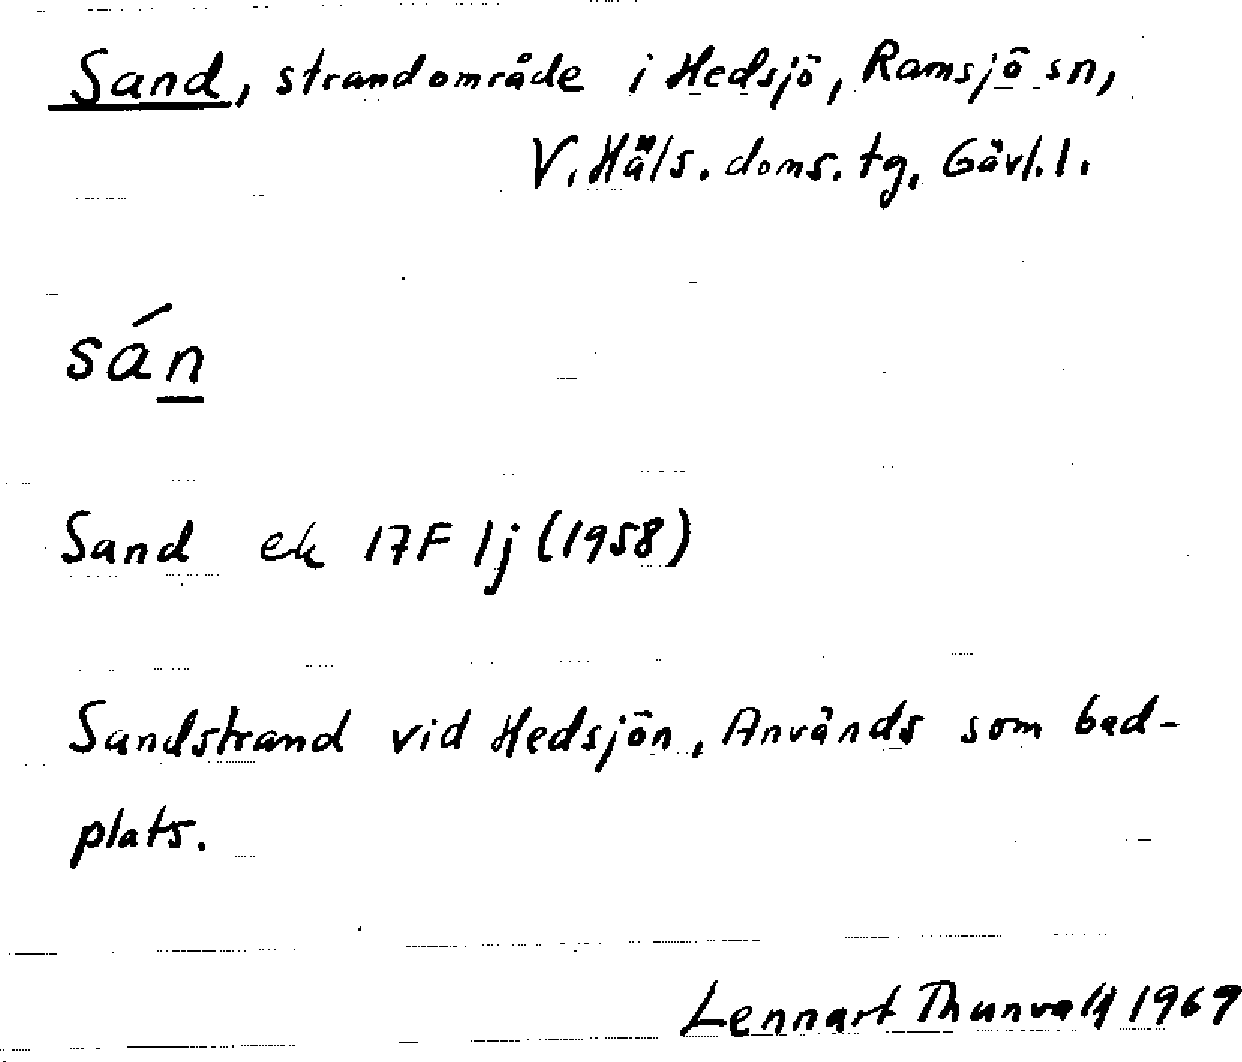 Sand, strandområde i Hedsjö, Ramsjö sn,
V. Häls. doms. tg, Gävl. l.
sán
Sand ek 17F 1j (1958)
Sandstrand vid Hedsjön. Används som bad-
plats.
Lennart Thunvall 1969